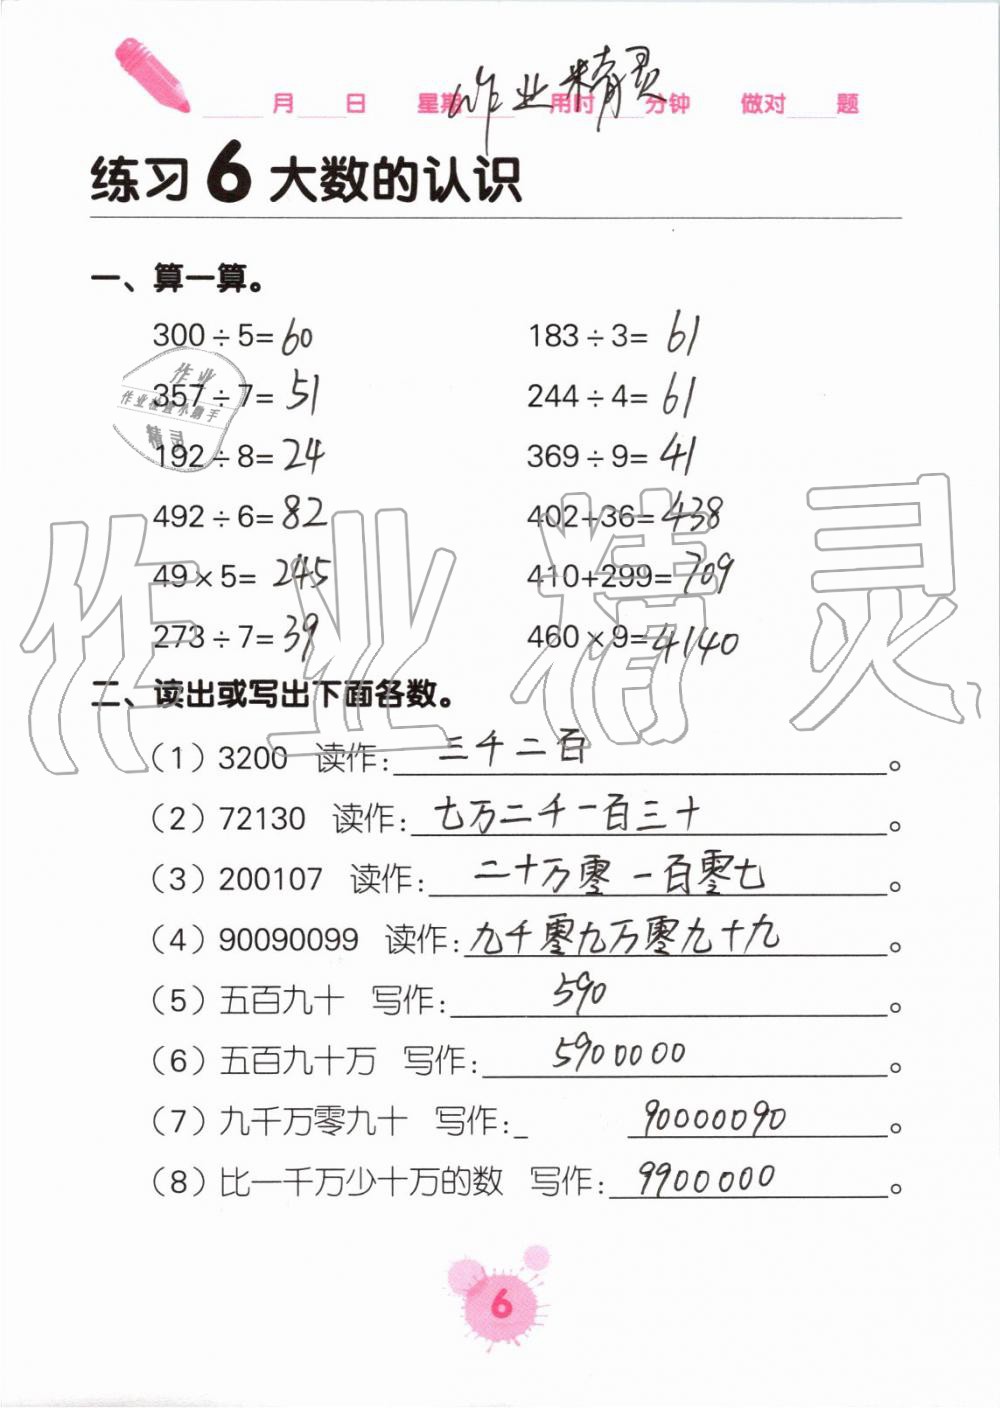 作业精灵
月 日 星期 用时 分钟 做对 题
练习6大数的认识
一、算一算。
300÷5=60 183÷3=61
357÷7=51 244÷4=61
192÷8=24 369÷9=41
492÷6=82 402+36=438
49×5=245 410+299=709
273÷7=39 460×9=4140
作业
作业检查小助手
精灵
作业精灵
二、读出或写出下面各数。
(1)3200 读作:三千二百。
(2)72130 读作:七万二千一百三十。
(3)200107 读作:二十万零一百零七。
(4)90090099 读作:九千零九万零九十九。
(5)五百九十 写作:590。
(6)五百九十万 写作:5900000。
(7)九千万零九十 写作:90000090。
(8)比一千万少十万的数 写作:9900000。
6